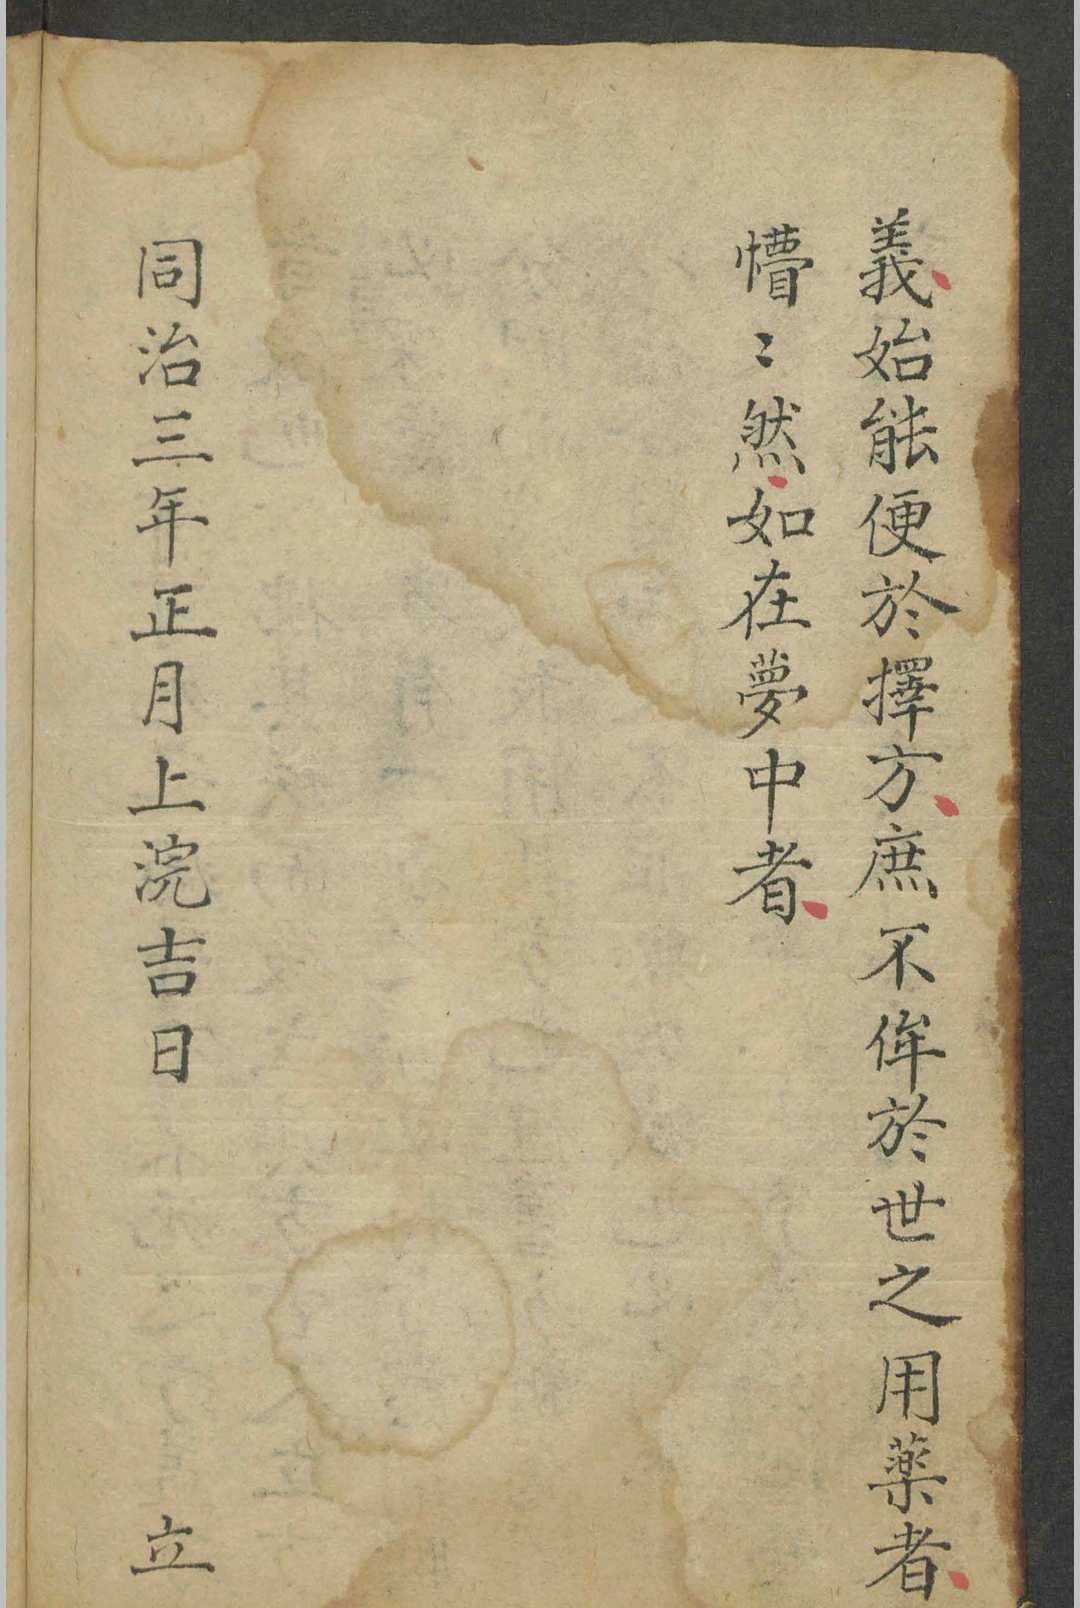 義始能便於擇方庶不侔於世之用薬者
懵〻然如在夢中者
同治三年正月上浣吉日立